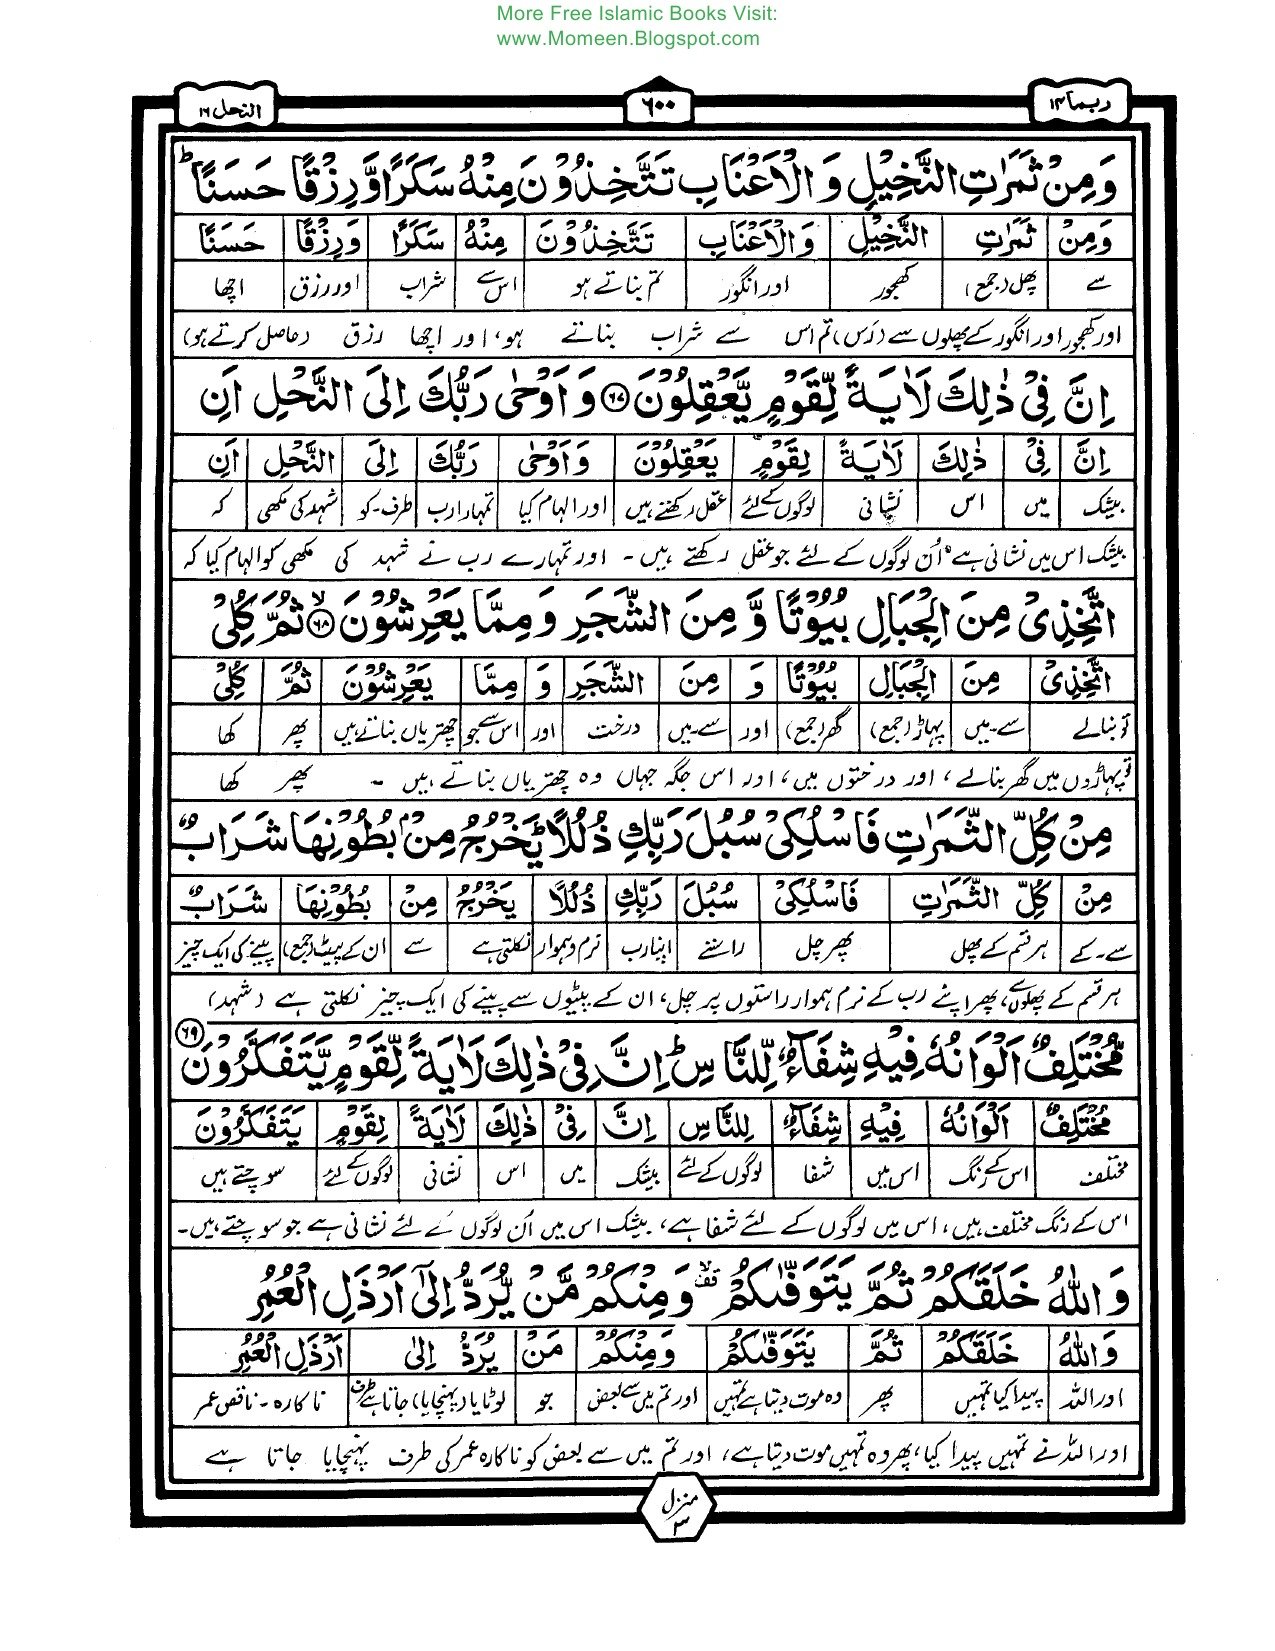 More Free Islamic Books Visit:
www.Momeen.Blogspot.com
ربما ۱۴
۶۰۰
النحل ۱۶
وَمِنْ ثَمَرٰتِ النَّخِیْلِ وَالْاَعْنَابِ تَتَّخِذُوْنَ مِنْهُ سَكَرًا وَّرِزْقًا حَسَنًا ؕ
وَمِنْ ثَمَرٰتِ النَّخِیْلِ وَالْاَعْنَابِ تَتَّخِذُوْنَ مِنْهُ سَكَرًا وَرِزْقًا حَسَنًا
سے پھل (جمع) کھجور اور انگور تم بناتے ہو اس سے شراب اور رزق اچھا
اور کھجور اور انگور کے پھلوں سے (رَس) تم اس سے شراب بناتے ہو، اور اچھا رزق (حاصل کرتے ہو)
اِنَّ فِیْ ذٰلِكَ لَاٰیَةً لِّقَوْمٍ یَّعْقِلُوْنَ ۶۷ وَاَوْحٰی رَبُّكَ اِلَی النَّحْلِ اَنِ
اِنَّ فِیْ ذٰلِكَ لَاٰیَةً لِقَوْمٍ یَعْقِلُوْنَ وَاَوْحٰی رَبُّكَ اِلَی النَّحْلِ اَنِ
بیشک میں اس نشانی لوگوں کے لئے عقل رکھتے ہیں اور الہام کیا تمہارا رب طرف۔کو شہد کی مکھی کہ
بیشک اس میں نشانی ہے اُن لوگوں کے لئے جو عقل رکھتے ہیں ۔ اور تمہارے رب نے شہد کی مکھی کو الہام کیا کہ
اتَّخِذِیْ مِنَ الْجِبَالِ بُیُوْتًا وَّ مِنَ الشَّجَرِ وَمِمَّا یَعْرِشُوْنَ ۶۸ ۙ ثُمَّ كُلِیْ
اتَّخِذِیْ مِنَ الْجِبَالِ بُیُوْتًا وَ مِنَ الشَّجَرِ وَ مِمَّا یَعْرِشُوْنَ ثُمَّ كُلِیْ
تو بنا لے سے۔میں پہاڑ (جمع) گھر (جمع) اور سے۔میں درخت اور اس سے جو چھتریاں بناتے ہیں پھر کھا
تو پہاڑوں میں گھر بنا لے، اور درختوں میں، اور اس جگہ جہاں وہ چھتریاں بناتے ہیں ۔ پھر کھا
مِنْ كُلِّ الثَّمَرٰتِ فَاسْلُكِیْ سُبُلَ رَبِّكِ ذُلُلًا ؕ یَخْرُجُ مِنْۢ بُطُوْنِهَا شَرَابٌ
مِنْ كُلِّ الثَّمَرٰتِ فَاسْلُكِیْ سُبُلَ رَبِّكِ ذُلُلًا یَخْرُجُ مِنْ بُطُوْنِهَا شَرَابٌ
سے۔کے ہر قسم کے پھل پھر چل راستے اپنا رب نرم و ہموار نکلتی ہے سے ان کے پیٹ (جمع) پینے کی ایک چیز
ہر قسم کے پھلوں سے، پھر اپنے رب کے نرم ہموار راستوں پر چل، ان کے پیٹوں سے پینے کی ایک چیز نکلتی ہے (شہد)
مُّخْتَلِفٌ اَلْوَانُهٗ فِیْهِ شِفَآءٌ لِّلنَّاسِ ؕ اِنَّ فِیْ ذٰلِكَ لَاٰیَةً لِّقَوْمٍ یَّتَفَكَّرُوْنَ ۶۹
مُخْتَلِفٌ اَلْوَانُهٗ فِیْهِ شِفَآءٌ لِلنَّاسِ اِنَّ فِیْ ذٰلِكَ لَاٰیَةً لِقَوْمٍ یَتَفَكَّرُوْنَ
مختلف اس کے رنگ اس میں شفا لوگوں کے لئے بیشک میں اس نشانی لوگوں کے لئے سوچتے ہیں
اس کے رنگ مختلف ہیں، اس میں لوگوں کے لئے شفا ہے، بیشک اس میں اُن لوگوں کے لئے نشانی ہے جو سوچتے ہیں۔
وَاللّٰهُ خَلَقَكُمْ ثُمَّ یَتَوَفّٰىكُمْ ۙ قف وَمِنْكُمْ مَّنْ یُّرَدُّ اِلٰۤی اَرْذَلِ الْعُمُرِ
وَاللّٰهُ خَلَقَكُمْ ثُمَّ یَتَوَفّٰىكُمْ وَمِنْكُمْ مَنْ یُرَدُّ اِلٰی اَرْذَلِ الْعُمُرِ
اور اللہ پیدا کیا تمہیں پھر وہ موت دیتا ہے تمہیں اور تم میں سے بعض جو لوٹایا (پہنچایا) جاتا ہے طرف ناکارہ۔ناقص عمر
اور اللہ نے تمہیں پیدا کیا، پھر وہ تمہیں موت دیتا ہے، اور تم میں سے بعض کو ناکارہ عمر کی طرف پہنچایا جاتا ہے
منزل ۳